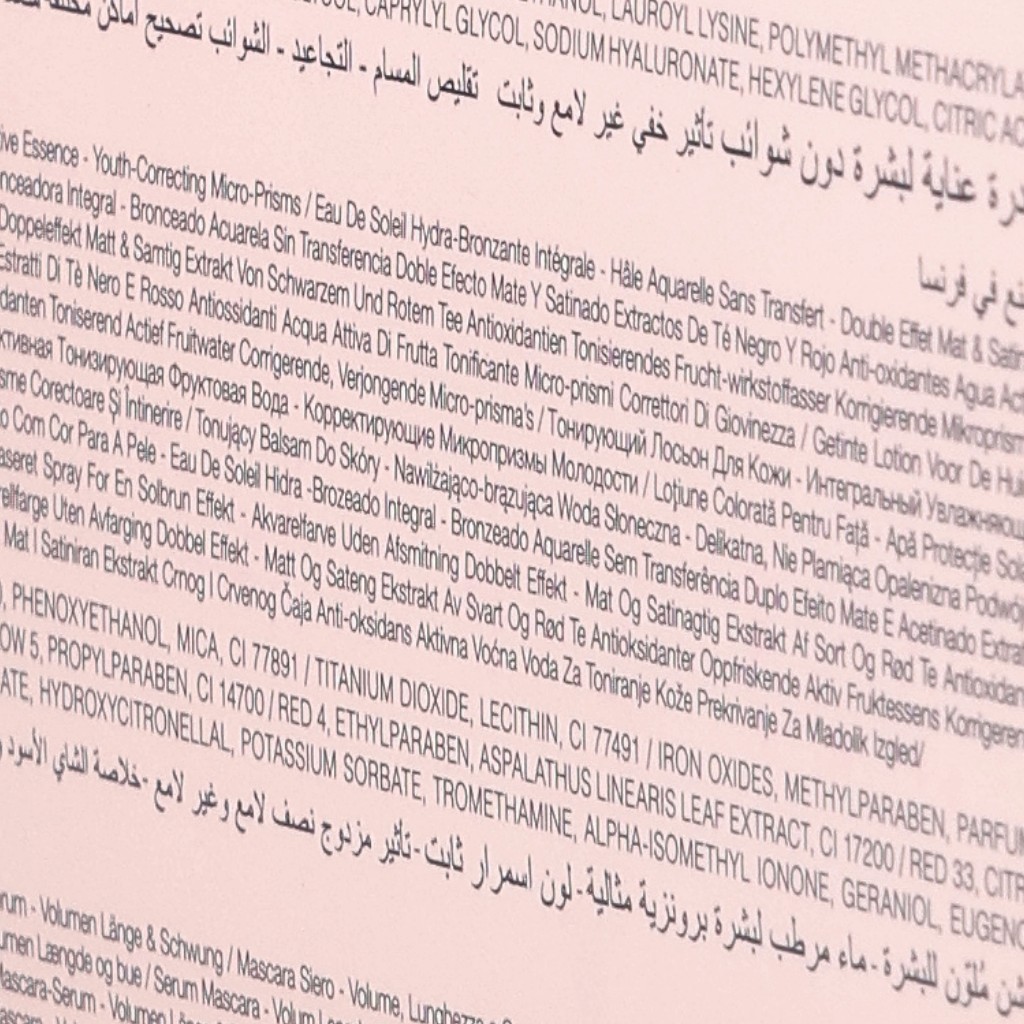 ETHANOL, LAUROYL LYSINE, POLYMETHYL METHACRYLA
GLYCOL, CAPRYLYL GLYCOL, SODIUM HYALURONATE, HEXYLENE GLYCOL, CITRIC AC
عناية لبشرة دون شوائب تأثير خفي غير لامع وثابت تقليص المسام - التجاعيد - الشوائب تصحيح أماكن
في فرنسا
ive Essence - Youth-Correcting Micro-Prisms / Eau De Soleil Hydra-Bronzante Intégrale - Hâle Aquarelle Sans Transfert - Double Effet Mat & Satin
nceadora Integral - Bronceado Acuarela Sin Transferencia Doble Efecto Mate Y Satinado Extractos De Té Negro Y Rojo Anti-oxidantes Agua Act
Doppeleffekt Matt & Samtig Extrakt Von Schwarzem Und Rotem Tee Antioxidantien Tonisierendes Frucht-wirkstoffasser Korrigierende Mikroprism
Estratti Di Tè Nero E Rosso Antiossidanti Acqua Attiva Di Frutta Tonificante Micro-prismi Correttori Di Giovinezza / Getinte Lotion Voor De Hui
danten Toniserend Actief Fruitwater Corrigerende, Verjongende Micro-prisma's / Тонирующий Лосьон Для Кожи - Интегральный Увлажняющ
ктивная Тонизирующая Фруктовая Вода - Корректирующие Микропризмы Молодости / Loțiune Colorată Pentru Față - Apă Protecție Sola
sme Corectoare Și Întinerire / Tonujący Balsam Do Skóry - Nawilżająco-brązująca Woda Słoneczna - Delikatna, Nie Plamiąca Opalenizna Podwój
o Com Cor Para A Pele - Eau De Soleil Hidra -Brozeado Integral - Bronzeado Aquarelle Sem Transferência Duplo Efeito Mate E Acetinado Extrat
aseret Spray For En Solbrun Effekt - Akvarelfarve Uden Afsmitning Dobbelt Effekt - Mat Og Satinagtig Ekstrakt Af Sort Og Rød Te Antioxidan
rellfarge Uten Avfarging Dobbel Effekt - Matt Og Sateng Ekstrakt Av Svart Og Rød Te Antioksidanter Oppfriskende Aktiv Fruktessens Korrigeren
Mat I Satiniran Ekstrakt Crnog I Crvenog Čaja Anti-oksidans Aktivna Voćna Voda Za Toniranje Kože Prekrivanje Za Mladolik Izgled/
), PHENOXYETHANOL, MICA, CI 77891 / TITANIUM DIOXIDE, LECITHIN, CI 77491 / IRON OXIDES, METHYLPARABEN, PARFUM
OW 5, PROPYLPARABEN, CI 14700 / RED 4, ETHYLPARABEN, ASPALATHUS LINEARIS LEAF EXTRACT, CI 17200 / RED 33, CITR
ATE, HYDROXYCITRONELLAL, POTASSIUM SORBATE, TROMETHAMINE, ALPHA-ISOMETHYL IONONE, GERANIOL, EUGENO
مُلوّن للبشرة - ماء مرطب لبشرة برونزية مثالية - لون اسمرار ثابت - تأثير مزدوج نصف لامع وغير لامع - خلاصة الشاي الأسود
rum - Volumen Länge & Schwung / Mascara Siero - Volume, Lunghezza
umen Længde og bue / Serum Mascara - Volum
Mascara-Serum - Volumen